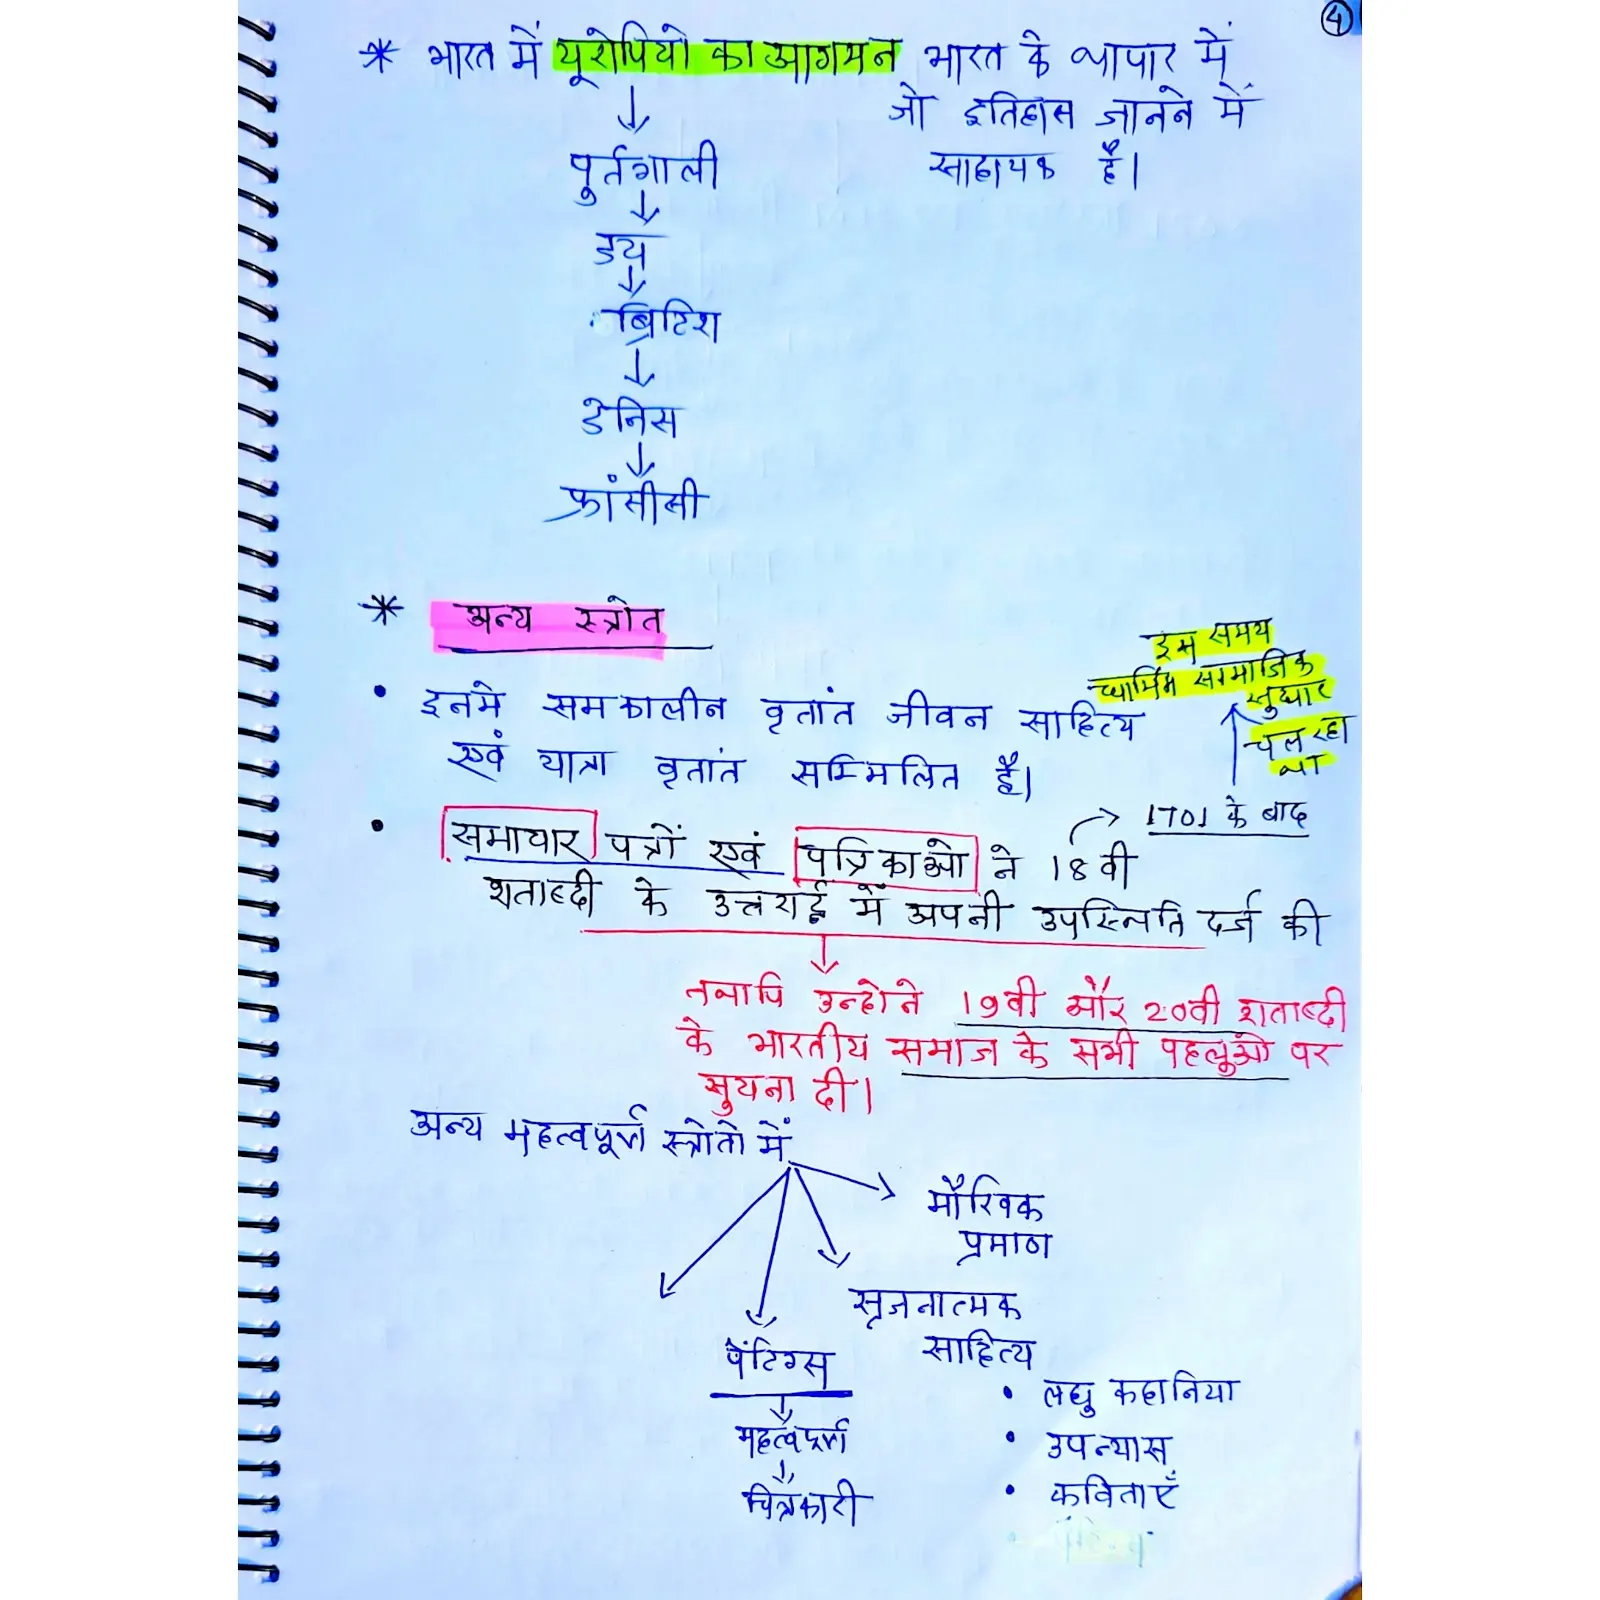 ④
* भारत में यूरोपियो का आगमन भारत के व्यापार में
जो इतिहास जानने में
साहायक है।
↓
पुर्तगाली
↓
डच
↓
ब्रिटिश
↓
डेनिस
↓
फ्रांसीसी
* अन्य स्त्रोत
• इनमे समकालीन वृतांत जीवन साहित्य
एवं यात्रा वृतांत सम्मिलित है।
इस समय
धार्मिक सामाजिक
सुधार
चल रहा
था
1701 के बाद
• समाचार पत्रों एवं पत्रिकाओ ने 18 वी
शताब्दी के उत्तरार्द्ध में अपनी उपस्थिति दर्ज की
↓
तथापि उन्होने 19वी और 20वी शताब्दी
के भारतीय समाज के सभी पहलुओ पर
सुचना दी।
अन्य महत्वपूर्ण स्त्रोतो में
मौखिक
प्रमाण
सृजनात्मक
साहित्य
• लघु कहानिया
• उपन्यास
• कविताएँ
पेंटिग्स
↓
महत्वपूर्ण
↓
चित्रकारी